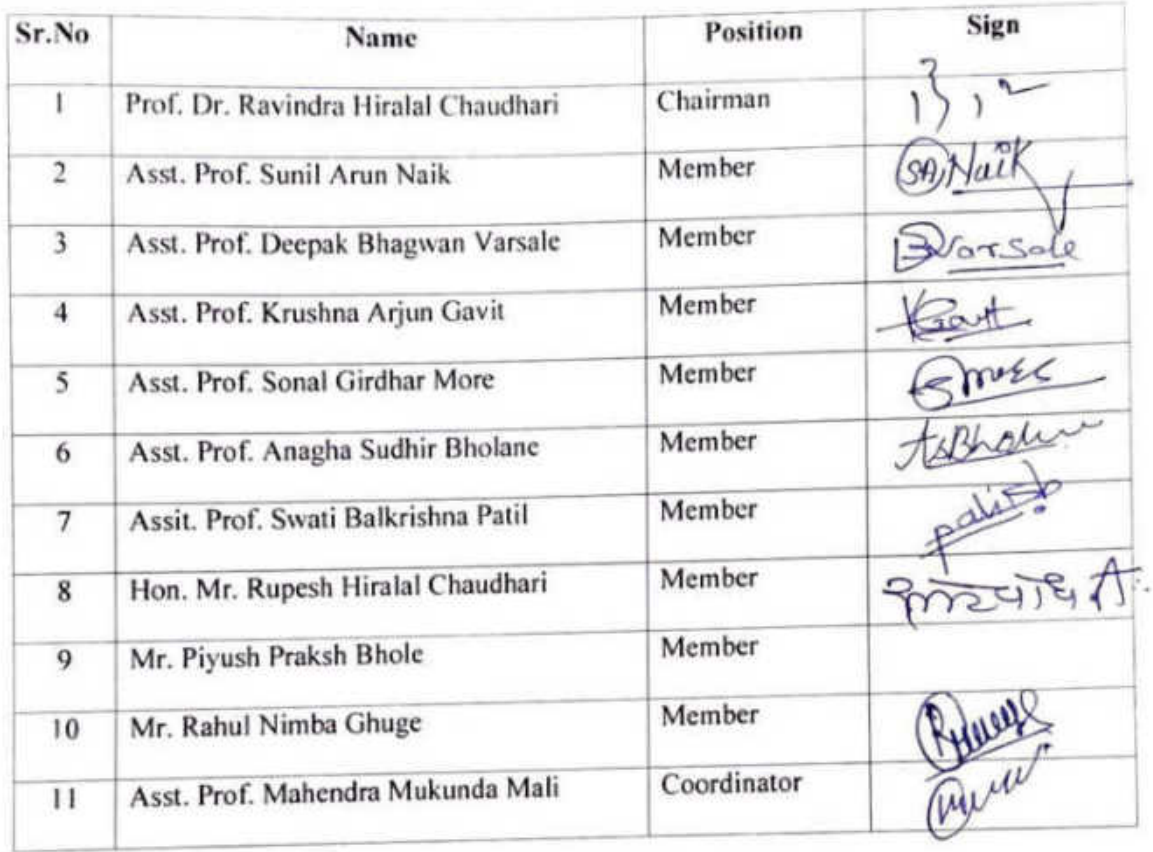 Sr.No Name Position Sign
1 Prof. Dr. Ravindra Hiralal Chaudhari Chairman
2 Asst. Prof. Sunil Arun Naik Member SA Naik
3 Asst. Prof. Deepak Bhagwan Varsale Member Varsale
4 Asst. Prof. Krushna Arjun Gavit Member
5 Asst. Prof. Sonal Girdhar More Member
6 Asst. Prof. Anagha Sudhir Bholane Member
7 Assit. Prof. Swati Balkrishna Patil Member
8 Hon. Mr. Rupesh Hiralal Chaudhari Member
9 Mr. Piyush Praksh Bhole Member
10 Mr. Rahul Nimba Ghuge Member
11 Asst. Prof. Mahendra Mukunda Mali Coordinator